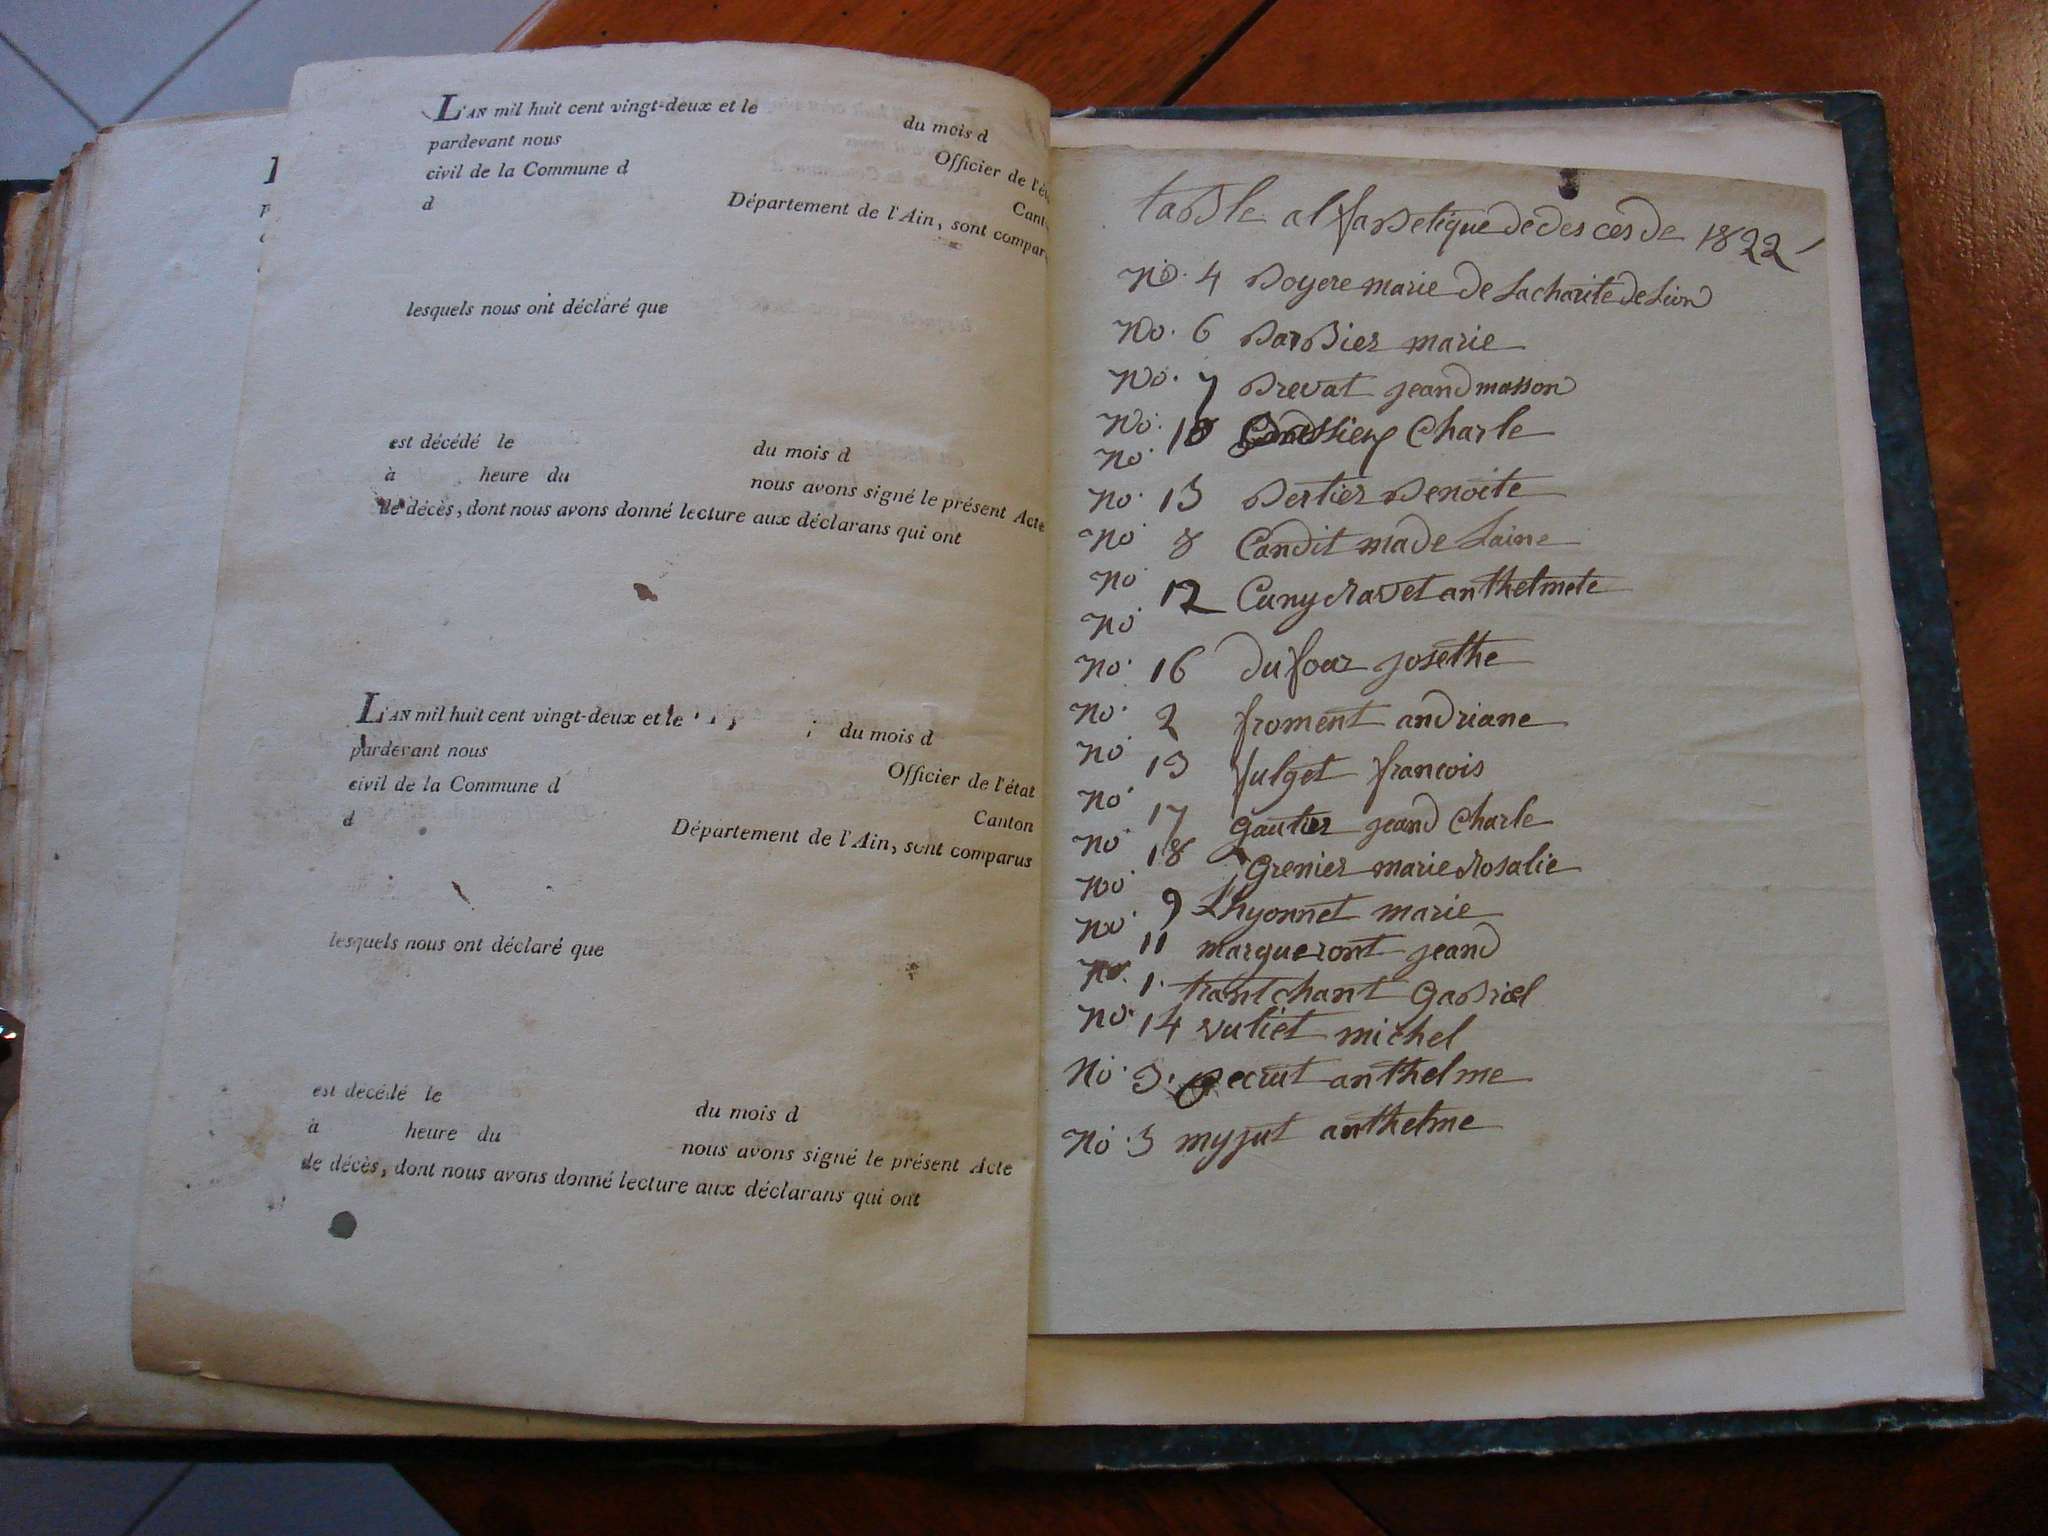 L'AN mil huit cent vingt-deux et le du mois d
pardevant nous Officier de l'ét
civil de la Commune d Cant
d Département de l'Ain, sont compar
lesquels nous ont déclaré que
est décédé le du mois d
à heure du nous avons signé le présent Acte
de décès, dont nous avons donné lecture aux déclarans qui ont
L'AN mil huit cent vingt-deux et le du mois d
pardevant nous Officier de l'état
civil de la Commune d Canton
d Département de l'Ain, sont comparus
lesquels nous ont déclaré que
est décédé le du mois d
à heure du nous avons signé le présent Acte
de décès, dont nous avons donné lecture aux déclarans qui ont
table alfabetique de des ces de 1822
No. 4 Boyere marie de Lacharite de Lion
No. 6 barbier marie
No. 7 brevat jeand masson
No. 10 Charle
No.
No. 13 bertier benoite
No 8 Candit made Laine
No 12 Cuny ravet anthelmete
No
No. 16 dufour josethe
No. 2 froment andriane
No 13 fulget francois
No 17 gautier jeand Charle
No 18 Grenier marie rosalie
No 9 Lhyonnet marie
No 11 margueront jeand
No. 1. trantchant Gabriel
No. 14 vuliet michel
No. 3. pecrut anthelme
No. 3 myjut anthelme